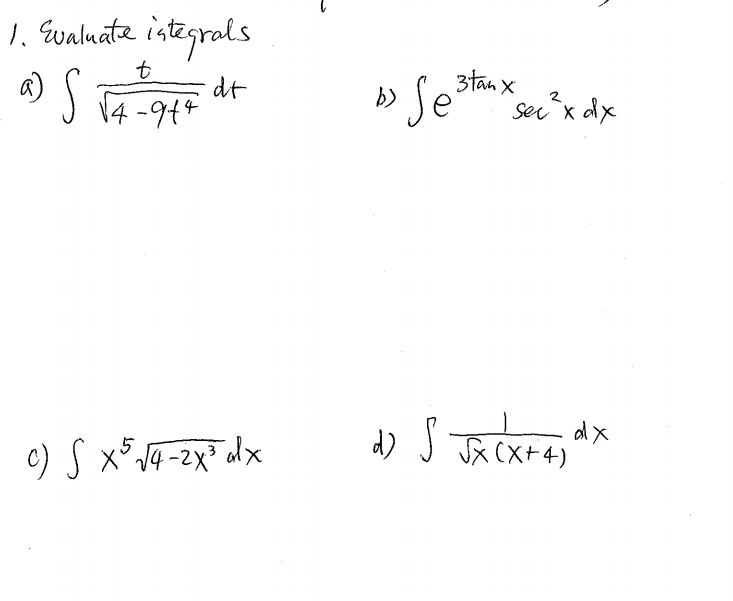 1. Evaluate integrals
a) ∫ t/√(4-9t⁴) dt
b) ∫ e^(3tan x) sec²x dx
c) ∫ x⁵ √(4-2x³) dx
d) ∫ 1/(√x (x+4)) dx